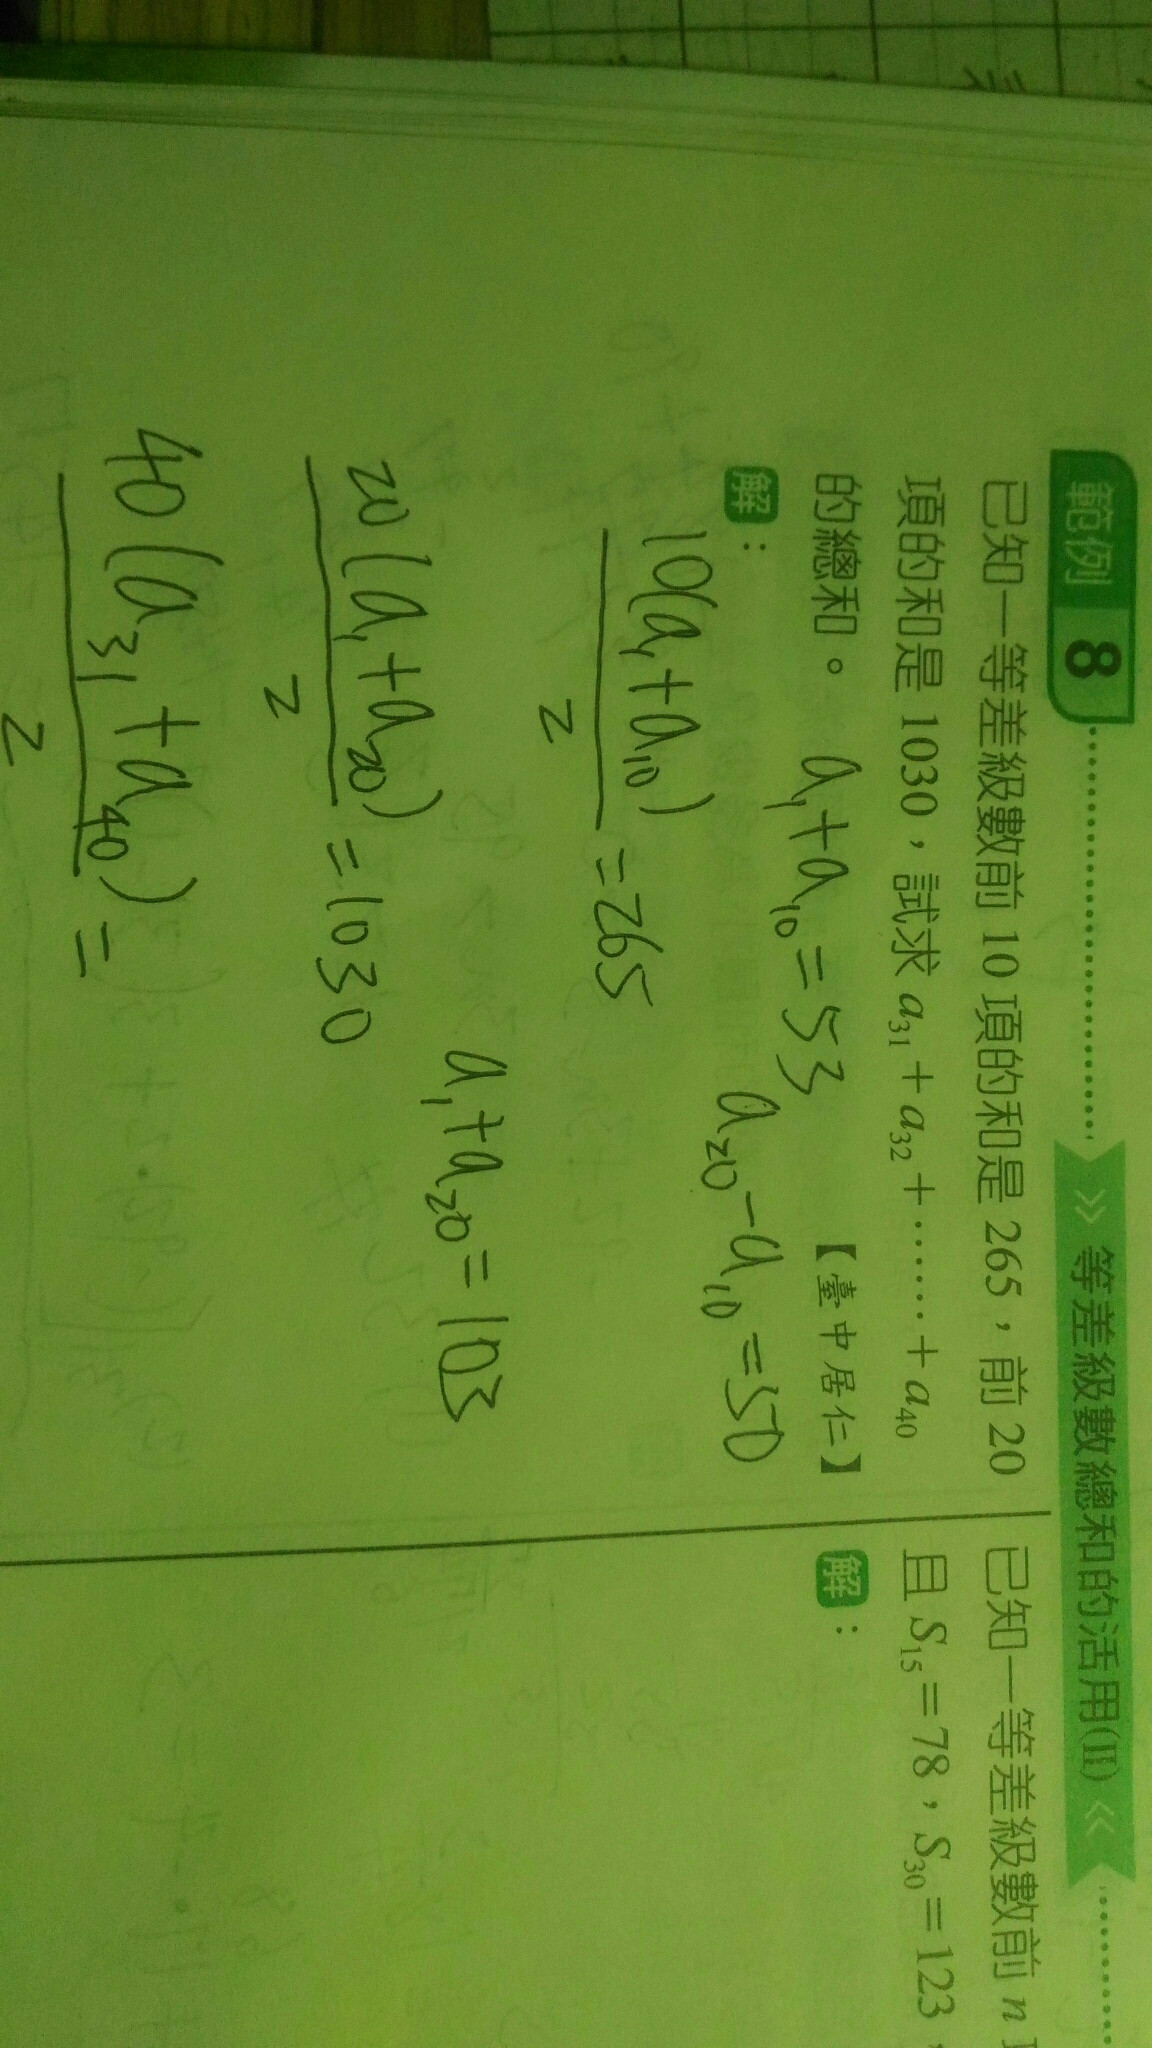 範例 8
>> 等差級數總和的活用(II) <<
已知一等差級數前 10 項的和是 265，前 20
項的和是 1030，試求 a₃₁＋a₃₂＋……＋a₄₀
的總和。
【臺中居仁】
a₁+a₁₀=53
a₂₀-a₁₀=50
解：
10(a₁+a₁₀)/2=265
a₁+a₂₀=103
20(a₁+a₂₀)/2=1030
40(a₃₁+a₄₀)/2=
已知一等差級數前 n
且 S₁₅＝78，S₃₀＝123，
解：